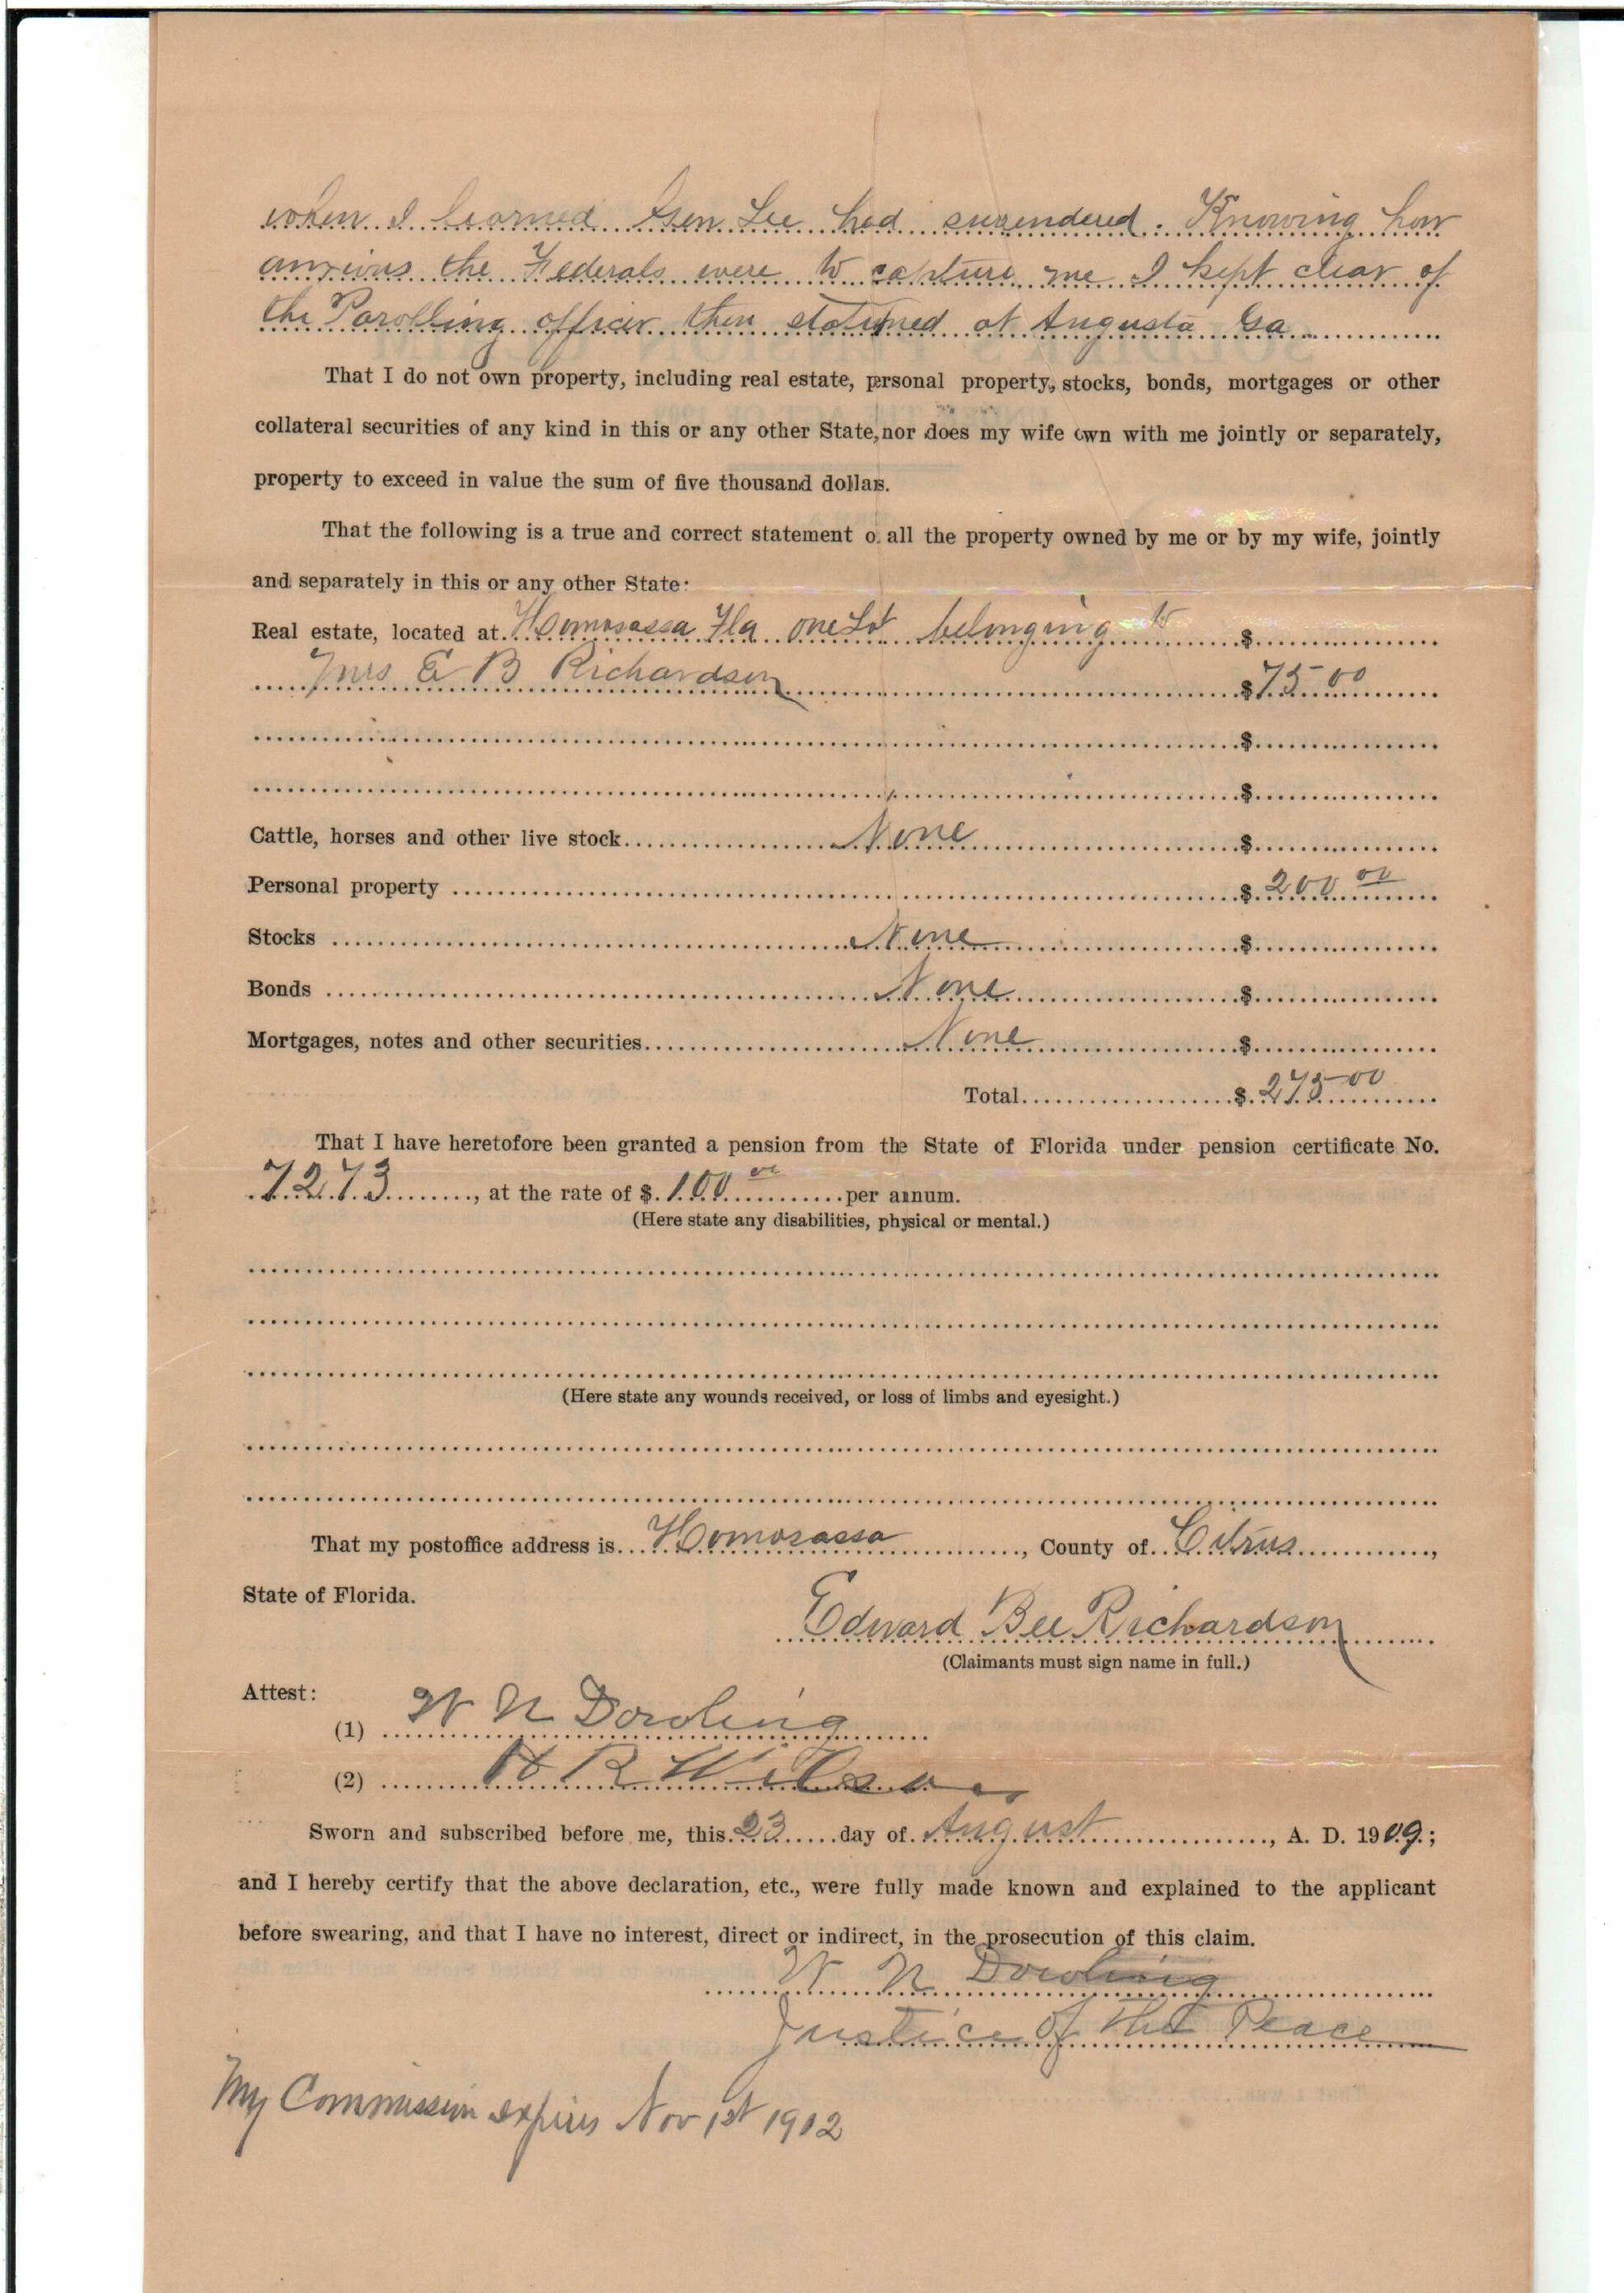 when I learned Gen Lee had surrendered. Knowing how
anxious the Federals were to capture me I kept clear of
the Parolling officer then stationed at Augusta Ga
That I do not own property, including real estate, personal property, stocks, bonds, mortgages or other
collateral securities of any kind in this or any other State, nor does my wife own with me jointly or separately,
property to exceed in value the sum of five thousand dollars.
That the following is a true and correct statement o. all the property owned by me or by my wife, jointly
and separately in this or any other State:
Real estate, located at Homosassa Fla one Lot belonging to $
Mrs E B Richardson $75 00
$
$
Cattle, horses and other live stock None $
Personal property $ 200 00
Stocks None $
Bonds None $
Mortgages, notes and other securities None $
Total $ 275 00
That I have heretofore been granted a pension from the State of Florida under pension certificate No.
7273, at the rate of $ 100 00 per annum.
(Here state any disabilities, physical or mental.)
(Here state any wounds received, or loss of limbs and eyesight.)
That my postoffice address is Homosassa, County of Citrus,
State of Florida.
Edward Bee Richardson
(Claimants must sign name in full.)
Attest:
(1) W N Dowling
(2) H R Wilson
Sworn and subscribed before me, this 23 day of August, A. D. 1909;
and I hereby certify that the above declaration, etc., were fully made known and explained to the applicant
before swearing, and that I have no interest, direct or indirect, in the prosecution of this claim.
W N Dowling
Justice of the Peace
My Commission expires Nov 1st 1912